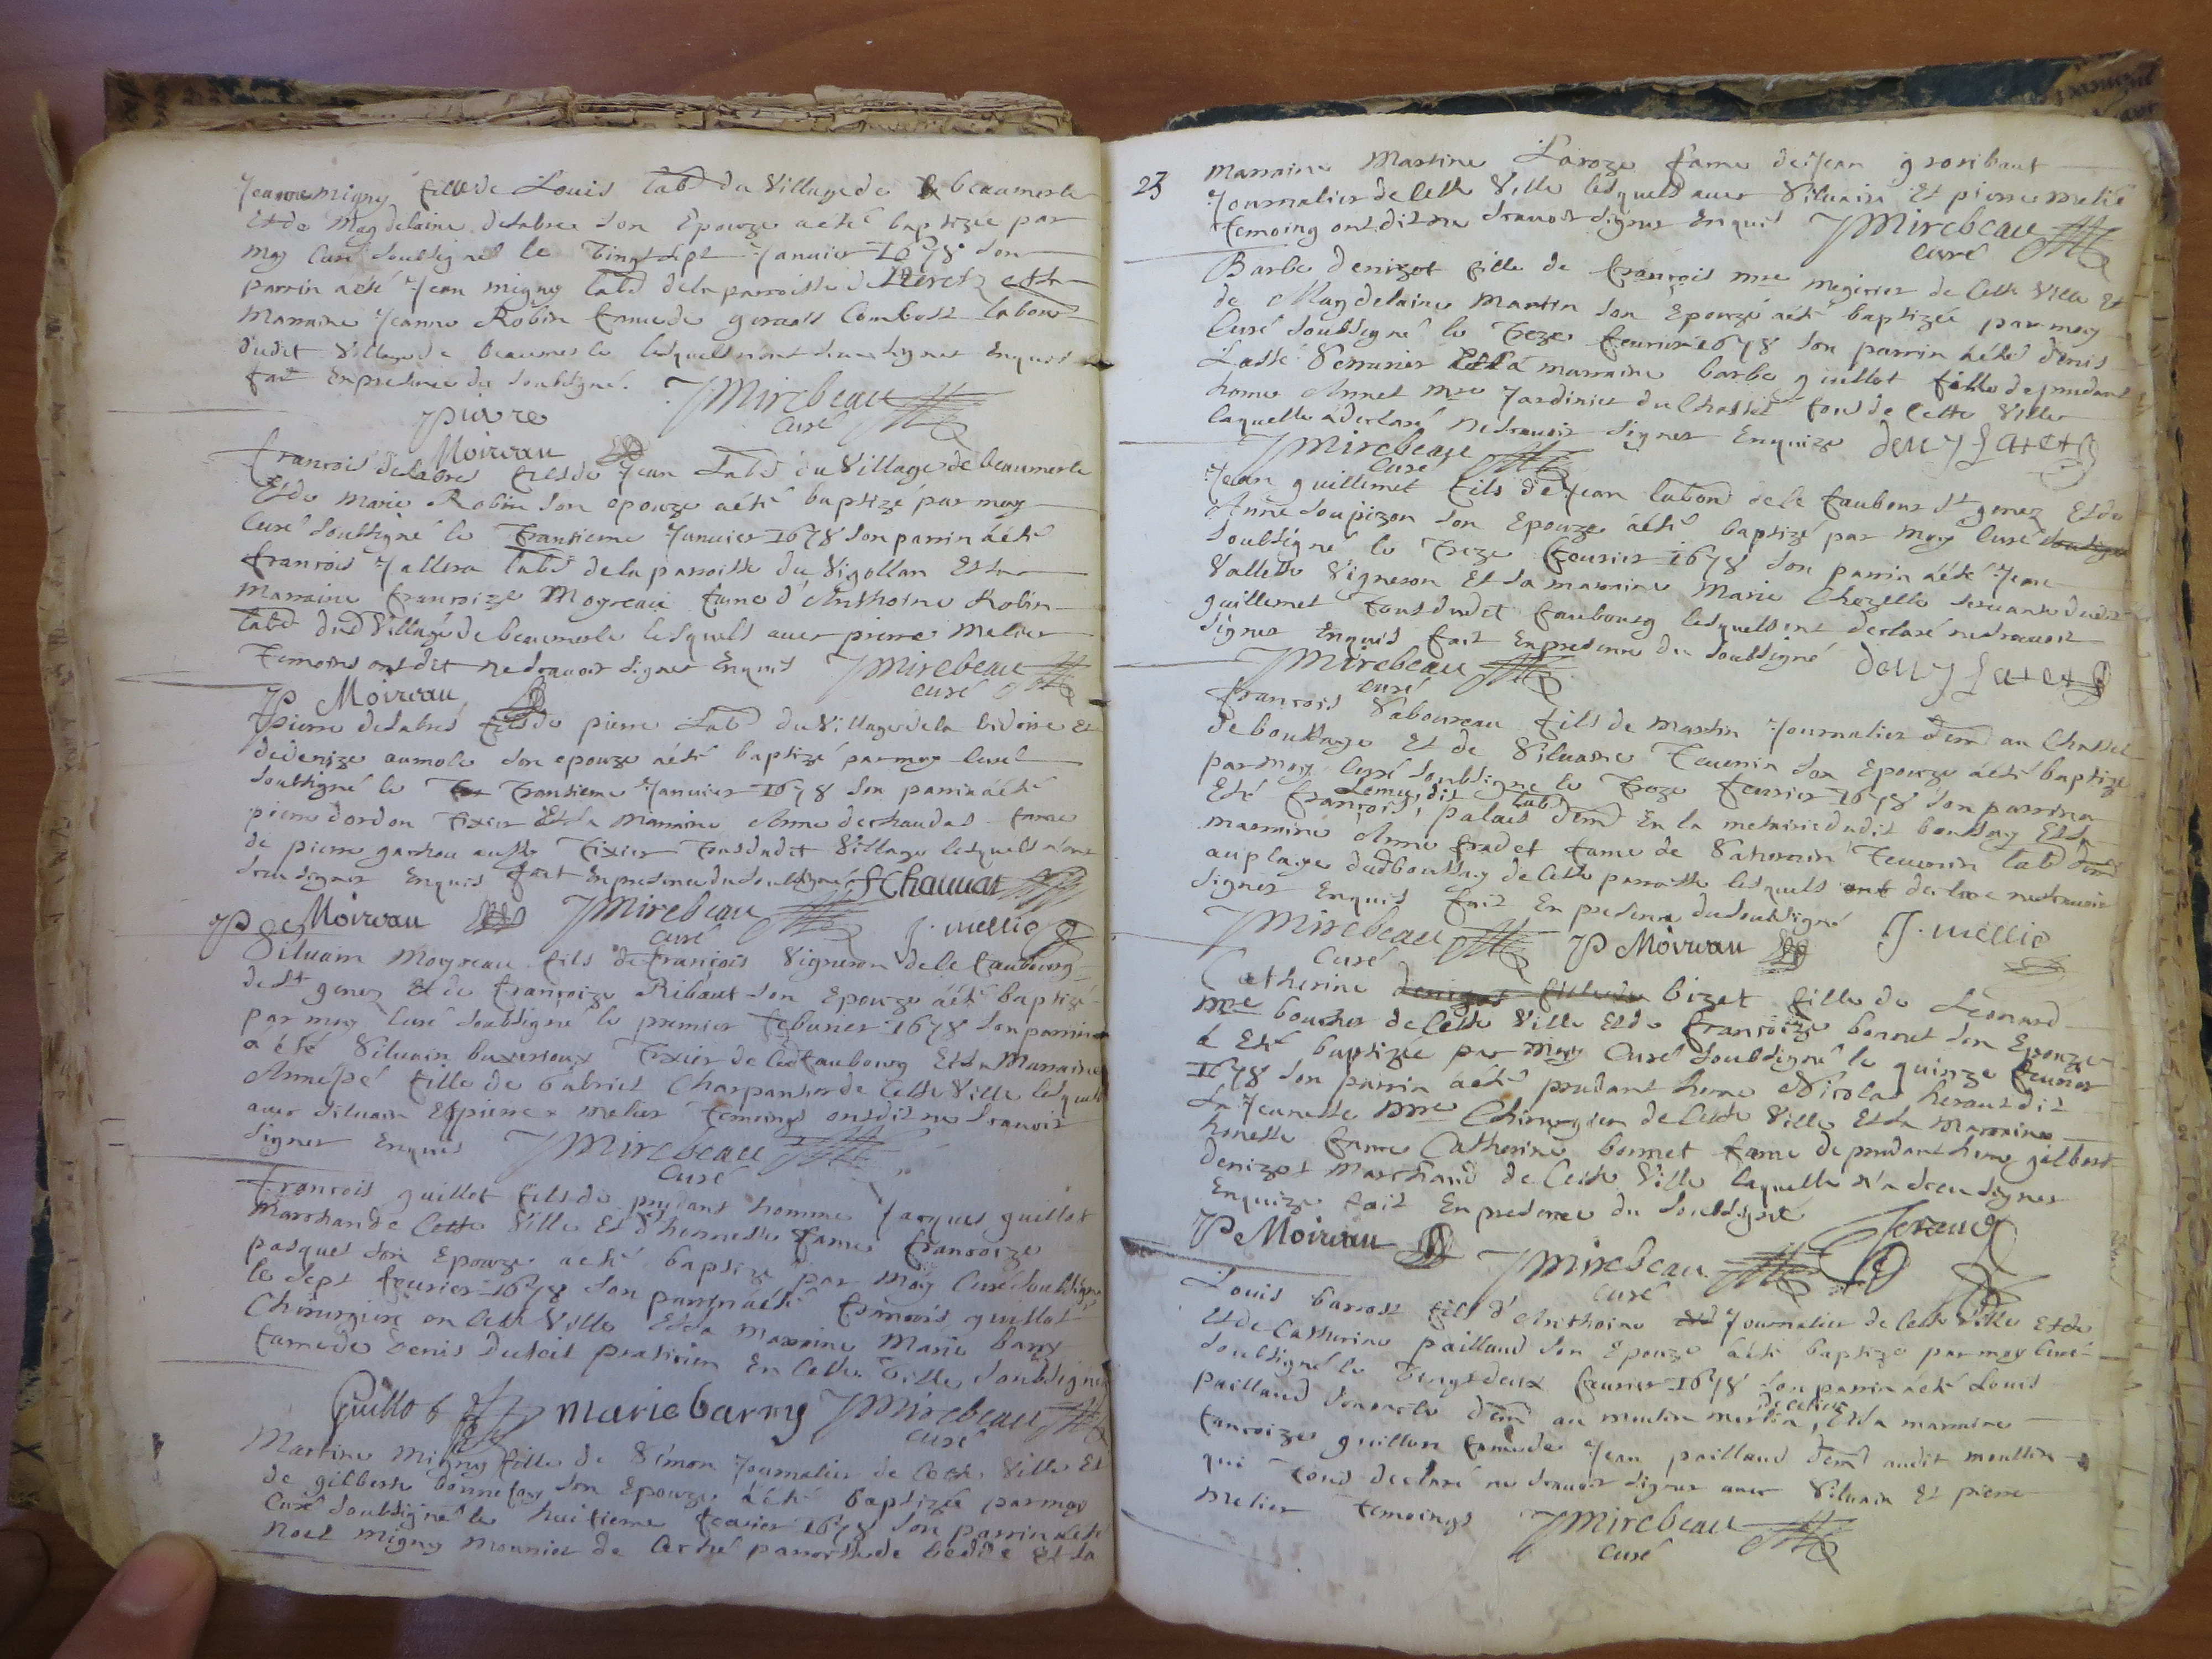 Jeanne migny fille de Louis labr du Village de beaumerle
Et de Magdelaine delabre son Epouze a esté baptizée par
moy Curé soubsigné le Vingt sept Januier 1678 son
parrin a esté Jean migny labr de la parroisse de Neret et la
Marraine Jeanne Robin fame de geruais Combost labour
dudit Village de beaumerle lesquels n'ont sceu signer Enquis
fait En presence du soubsigné. JMirebeau
curé
Pierre
Moireau
François delabres fils de Jean Labr du Village de beaumerle
Et de Marie Robin son epouze a esté baptizé par moy
Curé soubsigné le Trantieme Januier 1678 son parrin a esté
François Jallera labr de la parroisse du Vigollan Et la
Marraine françoize Moyreau fame d'Anthoine Robin
labr dud Village de beaumerle lesquels auec pierre Melier
Temoins ont dit ne scauoir signer Enquis JMirebeau
curé
JP Moireau
Pierre delabres fils de pierre Labr du Village de la bidoire Et
de denize aumole son epouze a esté baptizé par moy Curé
soubsigné le Trantieme Januier 1678 son parrin a esté
pierre dordon Tixier Et la Marraine Anne dechaudas fame
de pierre gachou aussy Tixier Tous dudit Village lesquels n'ont
sceu signer Enquis fait En presence du soubsigné FChauuat
JP Moireau JMirebeau J. mellie
curé
Siluain Moyreau fils de François Vigneron de le faubourg
de St genez Et de françoize Ribaut son Epouze a esté baptizé
par moy Curé soubsigné le premier feburier 1678 son parrin
a esté Siluain buxerioux Tixier de Led faubourg Et la Marraine
Anne pé fille de Gabriel Charpantier de Cette Ville lesquels
auec siluain Et pierre melier Temoings ont dit ne scauoir
signer Enquis JMirebeau
Curé
François guillot fils de prudant homme Jacques guillot
Marchand de Cette Ville Et d'honneste fame françoize
pasquet son Epouze a esté baptizé par Moy Curé soubsigné
le sept feurier 1678 son parrin a esté François guillot
Chirurgien en Cette Ville Et la Marrine Marie barry
fame de Denis Duteil praticien En Cette Ville soubsignez
Guillot marie barry JMirebeau
Curé
Martine Migny fille de Simon Journalier de Cette Ville Et
de gilberte bonnefoy son Epouze a esté baptizée par moy
Curé soubsigné le huitieme feurier 1678 son parrin a esté
Noel migny mounier de parroisse de Et la
23 Marraine Martine Laroze fame de Jean groribaut
Journalier de Cette Ville lesquels auec Siluain Et pierre melié
Temoing ont dit ne scauoir signer Enquis JMirebeau
Curé
Barbe denizot fille de françois mre megicier de Cette Ville Et
de Magdelaine Martin son Epouze a esté baptizée par moy
Curé soubsigné le Treze feurier 1678 son parrin a esté denis
Lassé Serrurier Et la marraine barbe guillot fille de prudant
home Annet mre Jardinier du Chastel tous de Cette Ville
laquelle a declaré ne scauoir signer Enquize
JMirebeau
Curé
Jean guillemet fils de Jean labour de le faubour St genez Et de
Anne Soupizon son Epouze a esté baptizé par moy Curé
soubsigné le Treze feurier 1678 son parrin a esté Jean
Vallette Vigneron Et la marraine Marie Chezelle seruante dudit
guillemet Tous dudit faubourg lesquels ont declaré ne scauoir
signer Enquis fait En presence du soubsigné
JMirebeau
curé
François Saboureau fils de Martin Journalier dem au Chastel
de boussaye Et de Siluaine Teuenin son Epouze a esté baptizé
par moy Curé soubsigné le Treze feurier 1678 son parrin a
Esté François, Lemery dit palais labr dem En la metairie dudit boussay Et la
marraine Anne fradet fame de Saturnin Teuenin labr dem
au playe dud boussay de Cette parroisse lesquels ont declaré ne scauoir
signer Enquis fait En presence du soubsigné
JMirebeau JP Moireau J. mellie
Curé
Catherine bizet fille de Leonard
mre boucher de Cette Ville Et de françoize bonnet son Epouze
a Esté baptizée par moy Curé soubsigné le quinze feurier
1678 son parrin a esté prudant home Nicolas heraut dit
La Jeunesse mre Chirurgien de Cette Ville Et la Marraine
honeste fame Catherine bonnet fame de prudant home gilbert
denizot Marchand de Cette Ville laquelle n'a sceu signer
Enquize fait En presence du soubsigné
JP Moireau JMirebeau heraud
Curé
Louis barrost fils d'Anthoine Journalier de Cette Ville Et de
Et de Catherine paillaud son Epouze a esté baptizé par moy Curé
soubsigné le Vingt deux feurier 1678 son parrin a esté Louis
paillaud dem au moulin merlin, Et la marraine
françoize guillon fame de Jean paillaud dem audit moullin
qui tous declaré ne scauoir signer auec Siluain Et pierre
Melier Temoings JMirebeau
curé